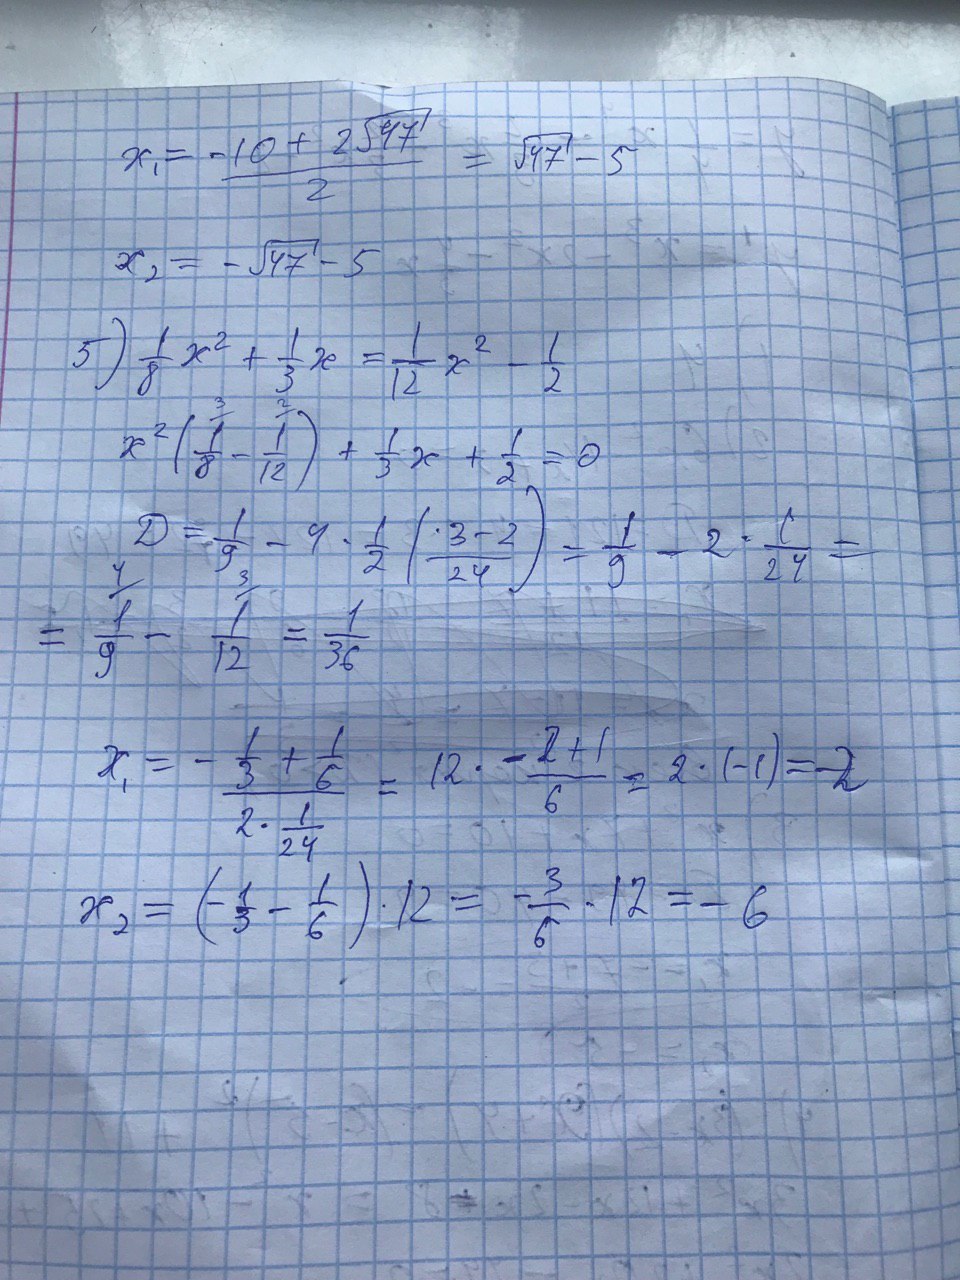 x₁ = -10 + 2√47 / 2 = √47 - 5
x₂ = -√47 - 5
5) 1/8 x² + 1/3 x = 1/12 x² - 1/2
x² (1/8 ³⁄ - 1/12 ²⁄) + 1/3 x + 1/2 = 0
D = 1/9 - 4 · 1/2 (3 - 2 / 24) = 1/9 - 2 · 1/24 =
= 1/9 ⁴⁄ - 1/12 ³⁄ = 1/36
x₁ = - 1/3 + 1/6 / 2 · 1/24 = 12 · -2 + 1 / 6 = 2 · (-1) = -2
x₂ = (-1/3 - 1/6) · 12 = -3/6 · 12 = -6